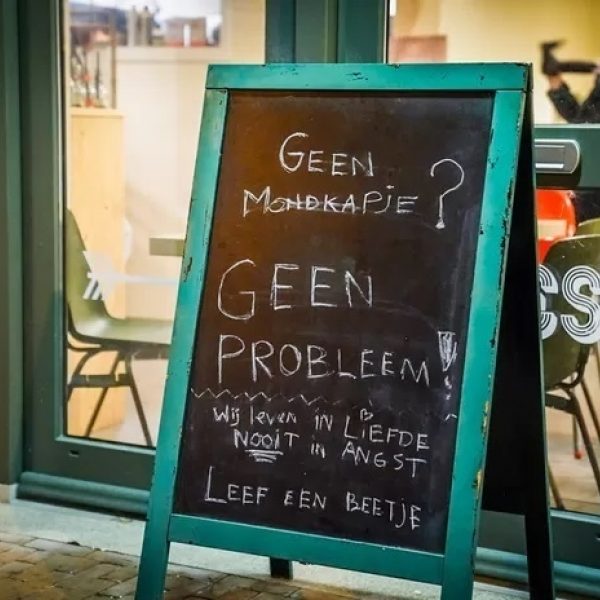 GEEN
MONDKAPJE?
GEEN
PROBLEEM!
Wij leven in LiEFDE
NOOIT in ANGST
LEEF EEN BEETJE
CS